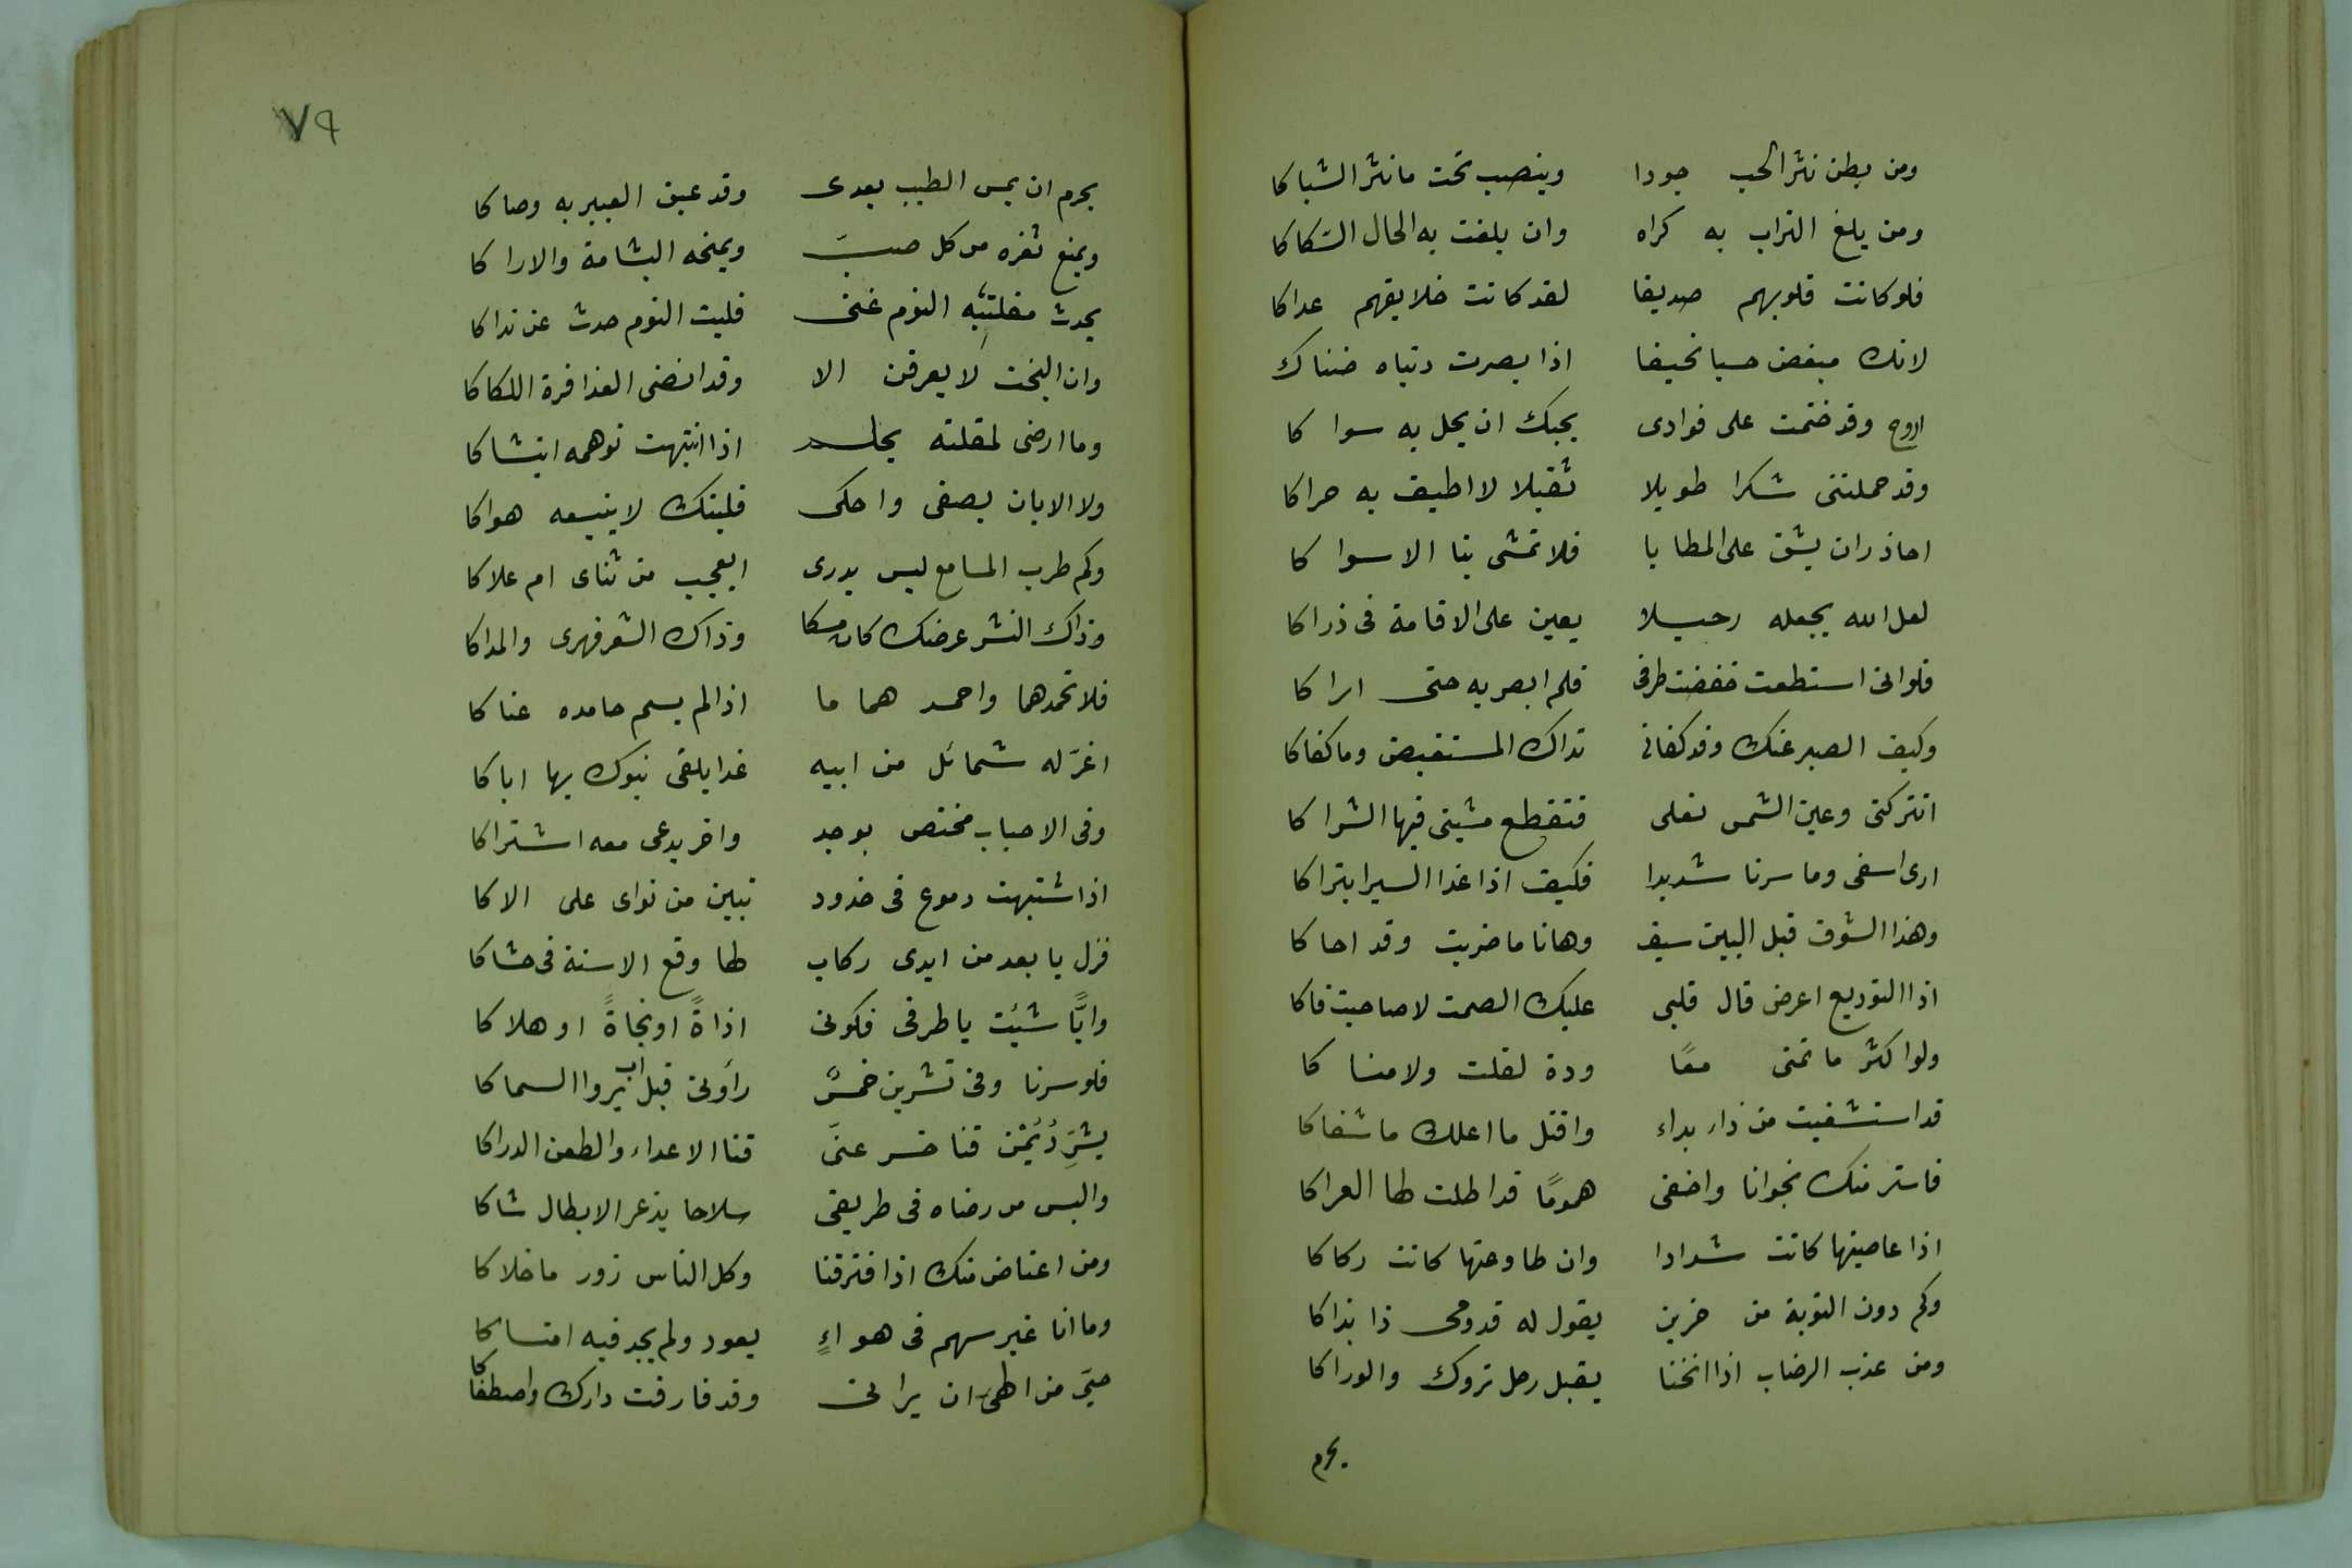 ومن يظن نثر الحب جودا وينصب تحت ما نثر الشباكا
ومن يلغ التراب به كراه وان بلغت به الحال السكاكا
فلو كانت قلوبهم صديقا لقد كانت خلايقهم عداكا
لانك مبغض حسبا نحيفا اذا بصرت دنياه ضناك
اروح وقد ختمت على فوادى بحبك ان يحل به سواكا
وقد حملتنى شكرا طويلا ثقيلا لا اطيق به حراكا
احاذر ان يشق على المطايا فلا تمشى بنا الا سواكا
لعل الله يجعله رحيلا يعين على الاقامة فى ذراكا
فلوانى استطعت خفضت طرفى فلم ابصر به حتى اراكا
وكيف الصبر عنك وقد كفانى نداك المستفيض وما كفاكا
اتتركنى وعين الشمس نعلى فتقطع مشيتى فيها الشراكا
ارى اسفى وما سرنا شديدا فكيف اذا غدا السير ابتراكا
وهذا الشوق قبل البين سيف وهانا ما ضربت وقد احاكا
اذا التوديع اعرض قال قلبى عليك الصمت لا صاحبت فاكا
ولوا كثر ما تمنى معًا ودة لقلت ولا مناكا
قد استشفيت من داء بداء واقتل ما اعلك ما شفاكا
فاستر منك نجوانا واخفى همومًا قد اطلت لها العراكا
اذا عاصيتها كانت شدادا وان طاوعتها كانت ركاكا
وكم دون الثوية من حزين يقول له قدومى ذا بذاكا
ومن عذب الرضاب اذا انخنا يقبل رحل تروك والوراكا
يحرم
٧٩
يحرم ان يمس الطيب بعدى وقد عبق العبير به وصاكا
ويمنع ثغره من كل صبّ ويمنحه البشامة والاراكا
يحدث مقلتيه النوم عنى فليت النوم حدث عن نداكا
وان البخت لا يعرقن الا وقد انضى العذافرة اللكاكا
وما ارضى لمقلته بحلم اذا انتبهت توهمه ابتشاكا
ولا الا بان يصغى واحكى فليتك لا يتيمه هواكا
وكم طرب المسامع ليس يدرى ايعجب من ثناى ام علاكا
وذاك النشر عرضك كان مسكا وذاك الشعر فهرى والمداكا
فلا تحمدهما واحمد هماما اذا لم يسم حامده عناكا
اغرّ له شمائل من ابيه غدا يلقى بنوك بها اباكا
وفى الاحباب مختص بوجد واخر يدعى معه اشتراكا
اذا اشتبهت دموع فى خدود تبين من نواى على الاكا
فزل يا بعد من ايدى ركاب لها وقع الاسنة فى حشاكا
وايًّا شئت يا طرقى فكونى اذاةً او نجاةً او هلاكا
فلو سرنا وفى تشرين خمسٌ راَونى قبل ان يروا السماكا
يشرّد يُمْن فنا خسر عنىّ قنا الاعداء والطعن الدراكا
والبس من رضاه فى طريقى سلاحا يذعر الابطال شاكا
ومن اعتاض منك اذا افترقنا وكل الناس زور ما خلاكا
وما انا غير سهم فى هواءٍ يعود ولم يجد فيه امتساكا
حيّ من الهىَ ان يرانى وقد فارقت دارك واصطفاكا